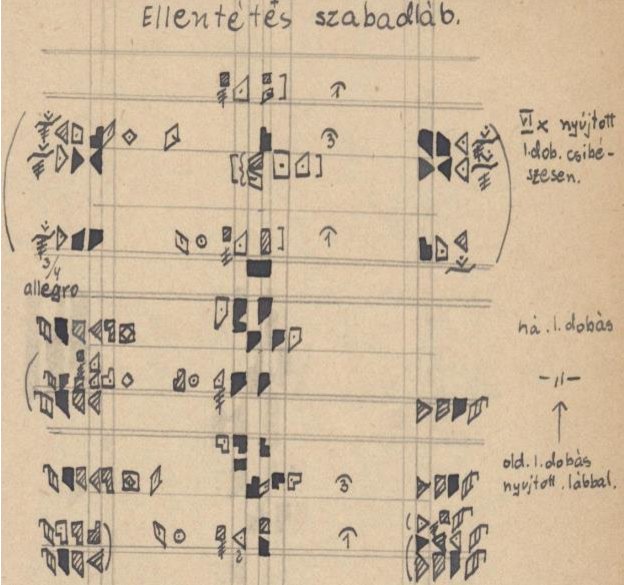 Ellentétés szabadláb.
VI x nyújtott
l.dob. csibé-
szesen.
3/4
allegro
há. l. dobás
-"-
old. l. dobás
nyújtott. lábbal.